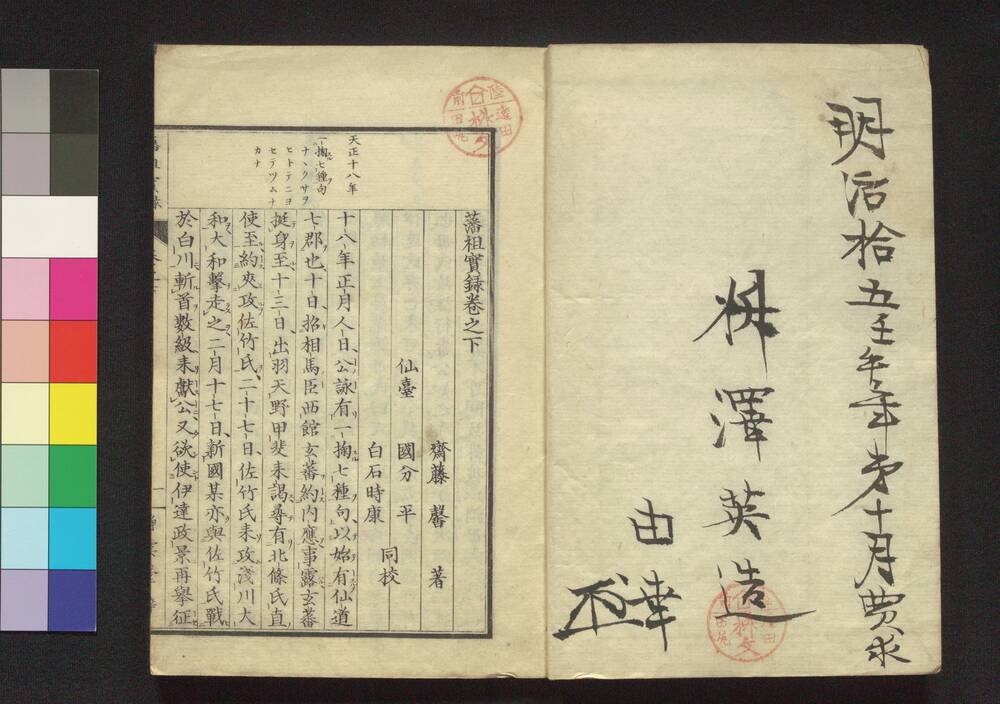 明治拾五壬午年第十月買求
栁澤英造
由
藩祖實録卷之下
齋藤馨著
仙臺國分平
白石時康同挍
天正十八年
一掬七種句
ナヽクサヲ
ヒトテニヨ
セテツムナ
カナ
十八年正月人日公詠有一掬七種句以始有仙道
七郡也十日招相馬臣西館玄蕃約内應事露玄蕃
挺身至十三日出羽天野甲斐来謁尋有北條氏直
使至約夾攻佐竹氏二十七日佐竹氏来攻淺川大
和大和擊走之二月十七日新國某亦與佐竹氏戰
於白川斬首數級来獻公又欲使伊達政景再舉征